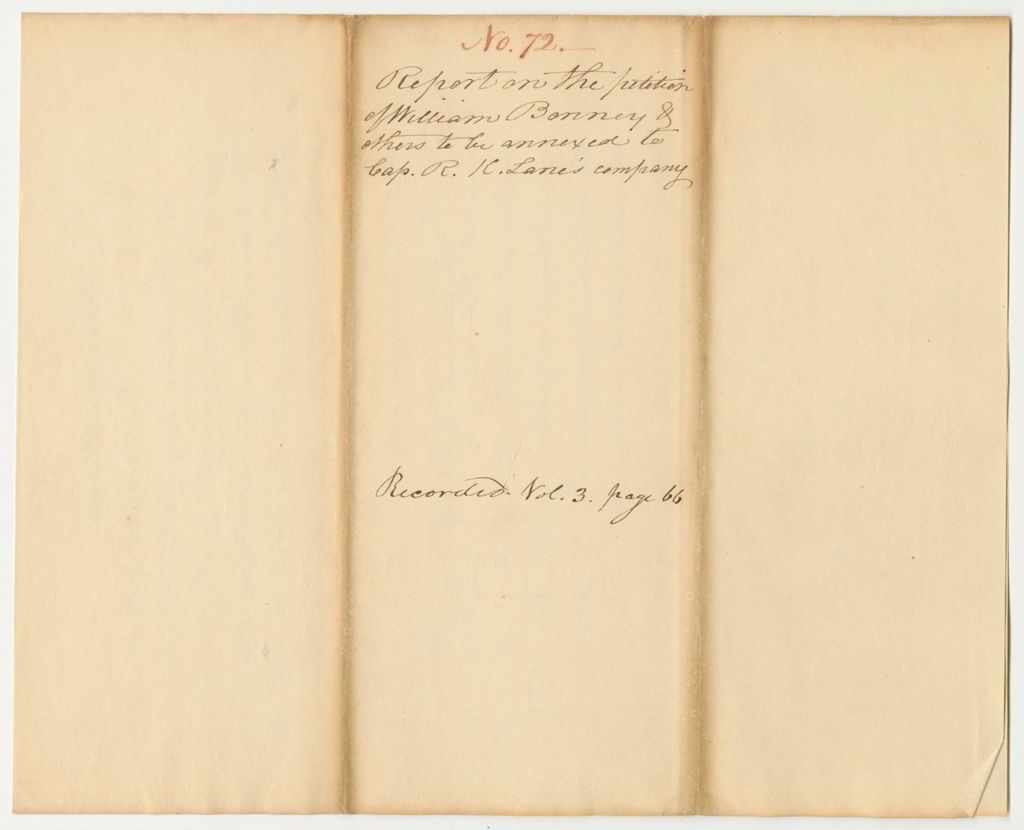 No. 72.
Report on the petition
of William Bonney &
others to be annexed to
Cap. R. K. Lane's company
Recorded Vol. 3. page 66